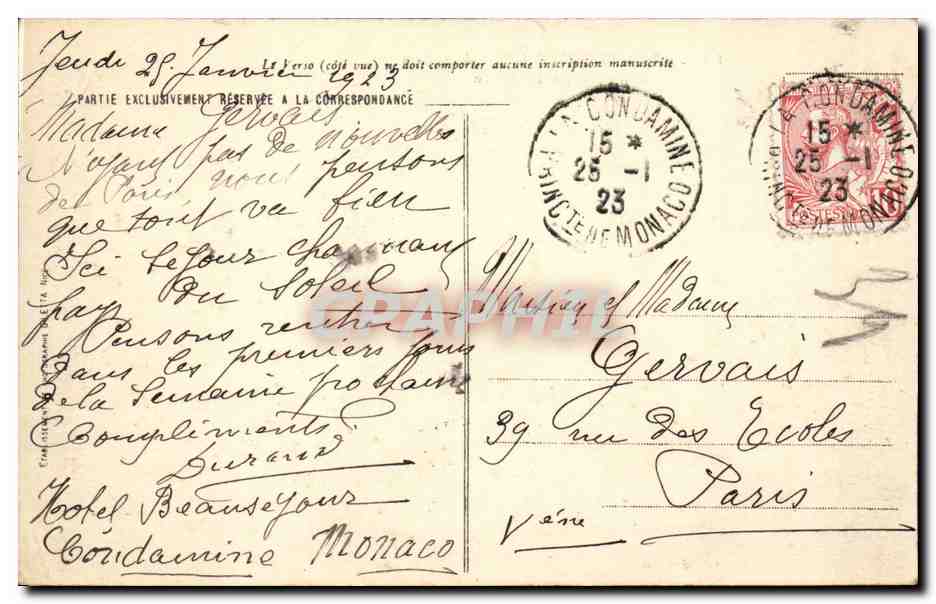 Le Verso (côté vue) ne doit comporter aucune inscription manuscrite
PARTIE EXCLUSIVEMENT RÉSERVÉE A LA CORRESPONDANCE
Jeudi 25 Janvier 1923
Madame Gervais
N'ayant pas de nouvelles
de Paris nous pensons
que tout va bien
Ici séjour charmant
pays du Soleil
Pensons rentrer
dans les premiers jours
de la Semaine prochaine
Compliments
Durand
Hotel Beauséjour
Condamine Monaco
LA CONDAMINE
15 *
25 -1
23
PRINCTE DE MONACO
LA CONDAMINE
15 *
25 -1
23
PRINCTE DE MONACO
Monsieur et Madame
Gervais
39 rue des Ecoles
Paris
Vème
CPAPHIL